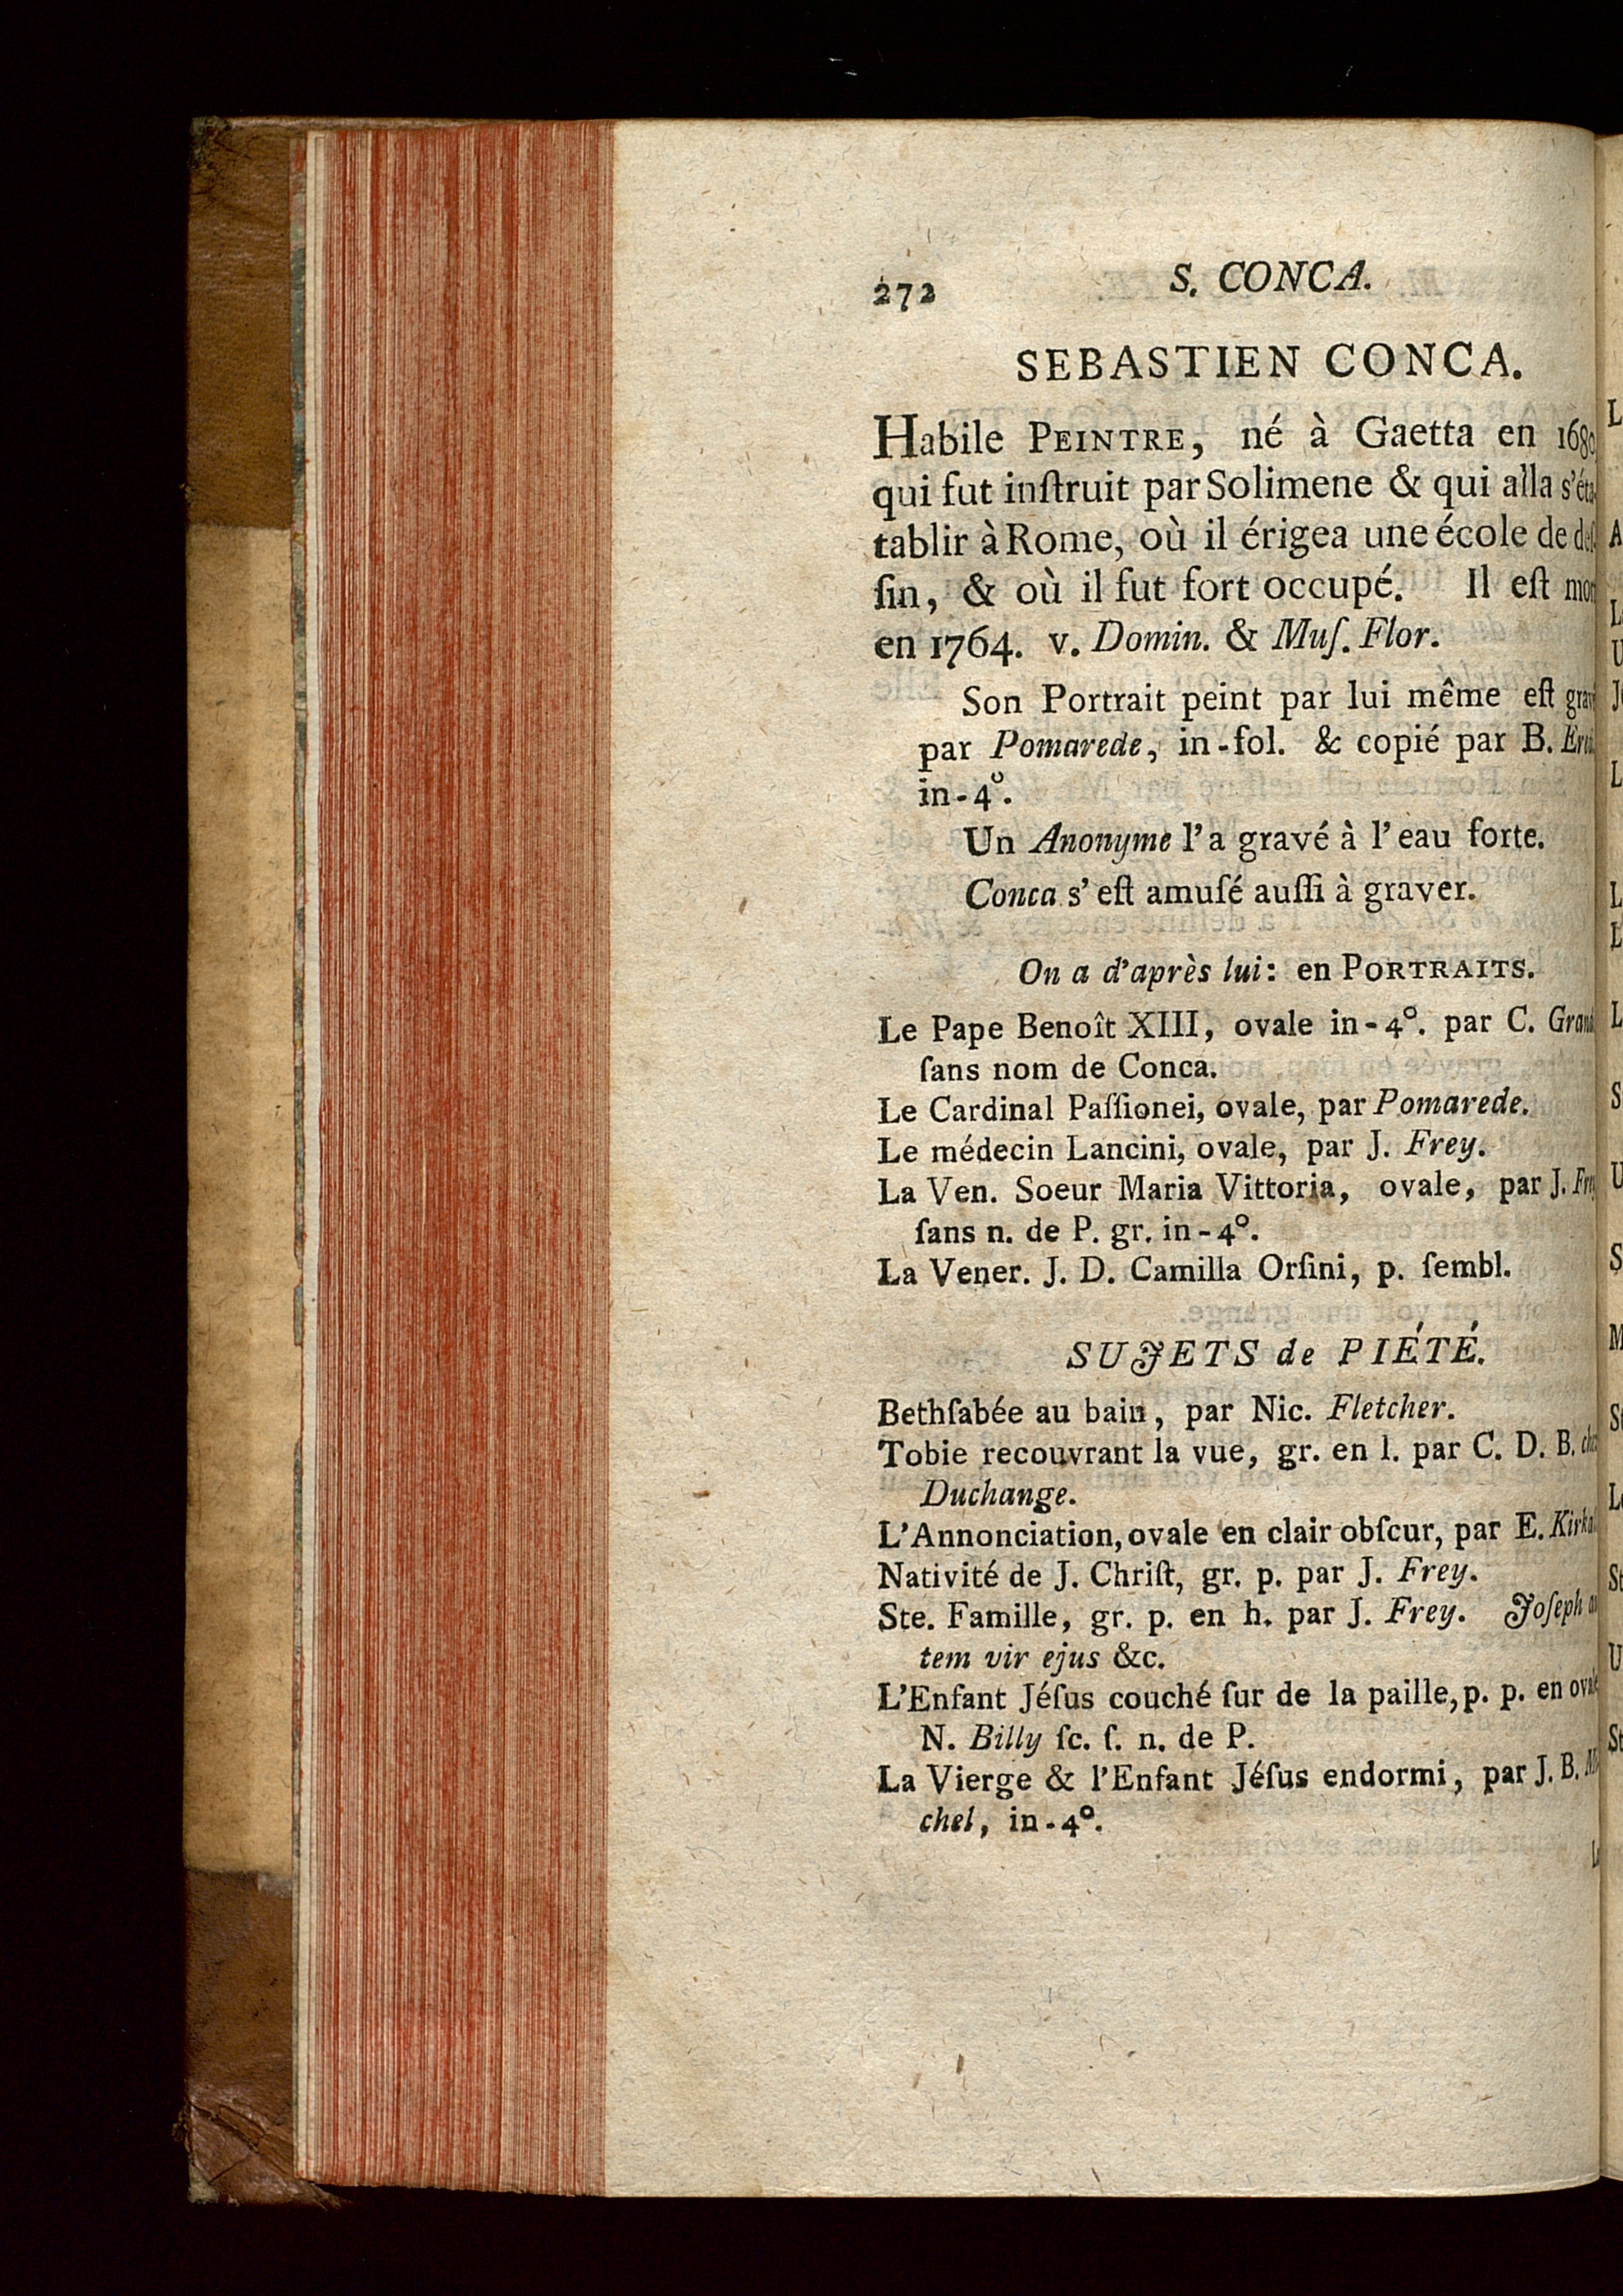 272
S. CONCA.
SEBASTIEN CONCA.
Habile PEINTRE, né à Gaetta en 1680
qui fut inſtruit par Solimene & qui alla s'éta
tablir à Rome, où il érigea une école de deſ
ſin, & où il fut fort occupé. Il eſt mor
en 1764. v. Domin. & Muſ. Flor.
Son Portrait peint par lui même eſt grav
par Pomarede, in-fol. & copié par B.
in-4°.
Un Anonyme l'a gravé à l'eau forte.
Conca s'eſt amuſé auſſi à graver.
On a d'après lui: en PORTRAITS.
Le Pape Benoît XIII, ovale in-4°. par C.
ſans nom de Conca.
Le Cardinal Paſſionei, ovale, par Pomarede.
Le médecin Lancini, ovale, par J. Frey.
La Ven. Soeur Maria Vittoria, ovale, par J. Frey
ſans n. de P. gr. in-4°.
La Vener. J. D. Camilla Orſini, p. ſembl.
SUJETS de PIÉTÉ.
Bethſabée au bain, par Nic. Fletcher.
Tobie recouvrant la vue, gr. en l. par C. D. B.
Duchange.
L'Annonciation, ovale en clair obſcur, par E. Kirkal
Nativité de J. Chriſt, gr. p. par J. Frey.
Ste. Famille, gr. p. en h. par J. Frey. Joſeph au
tem vir ejus &c.
L'Enfant Jéſus couché ſur de la paille, p. p. en ovale
N. Billy ſc. ſ. n. de P.
La Vierge & l'Enfant Jéſus endormi, par J. B. Mi
chel, in-4°.